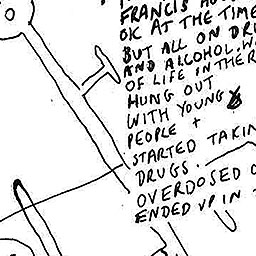 FRANCIS
OK AT THE TIME
BUT ALL ON
AND ALCOHOL.
OF LIFE IN
HUNG OUT
WITH YOUNG
PEOPLE +
STARTED
DRUGS.
OVERDOSED
ENDED UP IN